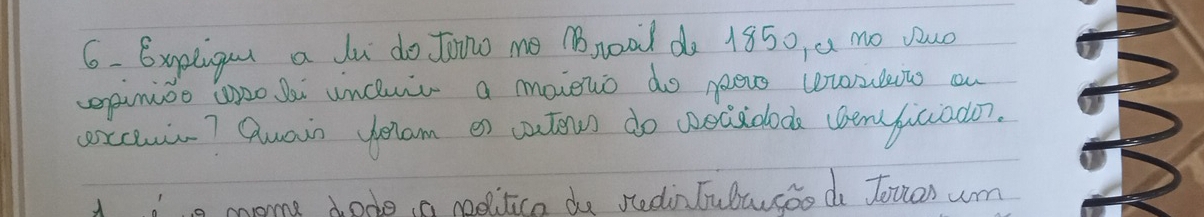 6- Explique a lei da Terra no Brasil de 1850, e na sua
opinião essa lei incluiu a maioria do povo brasileiro ou
excluiu? Quais foram os setores da sociedade beneficiados.
é o nome dado a política de redistribuição de Terras um